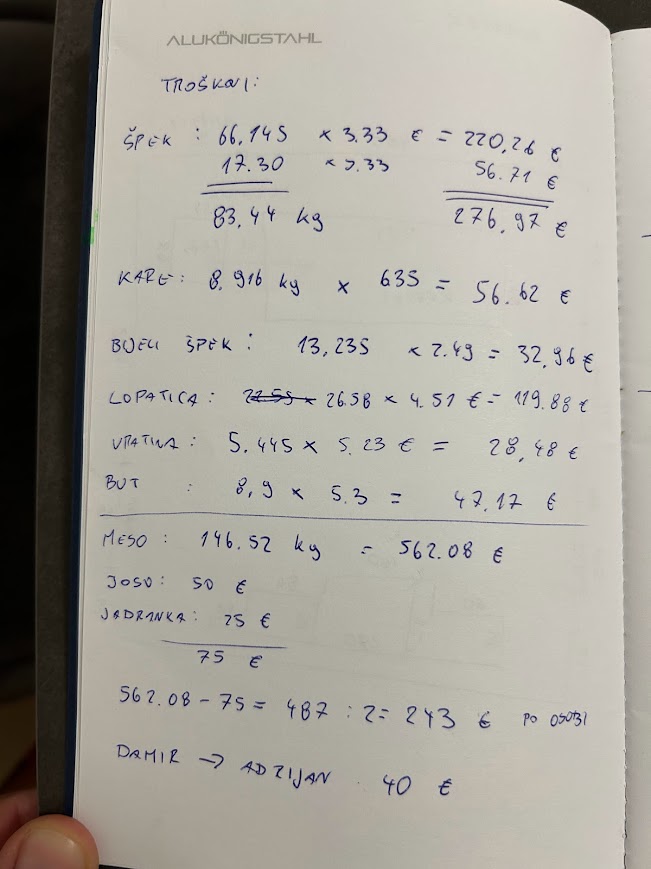 ALUKÖNIGSTAHL
TROŠKOVI:
ŠPEK : 66.145 x 3.33 € = 220,26 €
17.30 x 3.33 56.71 €
83.44 kg 276.97 €
KARE: 8.916 kg x 635 = 56.62 €
BIJELI ŠPEK : 13,235 x 2.49 = 32,96 €
LOPATICA : 22.55 x 26.58 x 4.51 € = 119.88 €
VRATINA : 5.445 x 5.23 € = 28,48 €
BUT : 8,9 x 5.3 = 47.17 €
MESO : 146.52 kg = 562.08 €
JOSO : 50 €
JADRANKA : 25 €
75 €
562.08 - 75 = 487 : 2 = 243 € PO OSOBI
DAMIR → ADRIJAN 40 €